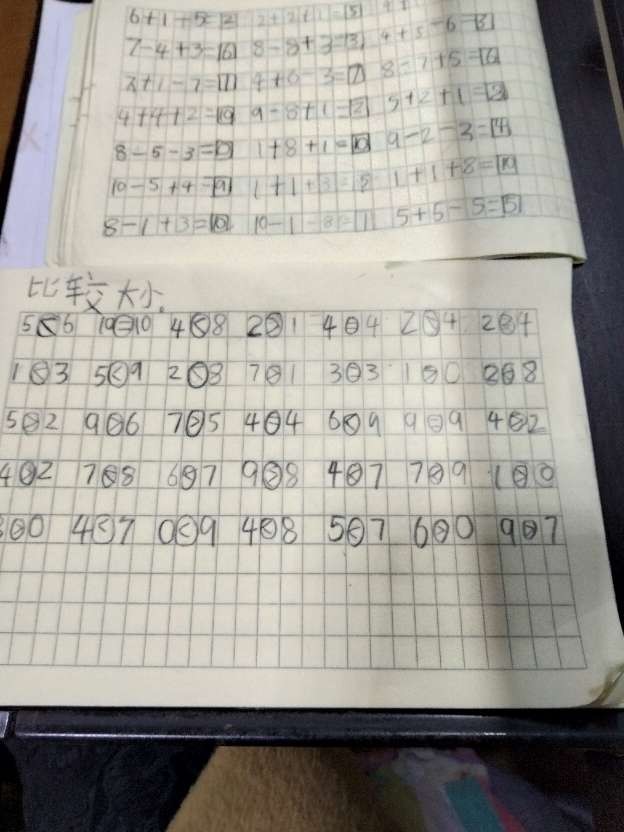 6+1+5=12 2+2+1=5
7-4+3=6 8-8+3=3 4+5-6=3
7+1-7=1 4+6-3=7 8-7+5=6
4+4+2=10 9-8+1=2 5+2+1=8
8-5-3=0 1+8+1=10 9-2-3=4
10-5+4=9 1+1+3=5 1+1+8=10
8-1+3=10 10-1-8=1 5+5-5=5
比较大小。
5<6 10=10 4<8 2>1 4=4 2<4 2<4
1<3 5<9 2<8 7>1 3=3 1>0 2<8
5>2 9>6 7>5 4=4 6<9 9=9 4>2
4>2 7<8 6<7 9>8 4<7 7<9 1>0
4<7 0<9 4<8 5<7 6>0 9>7